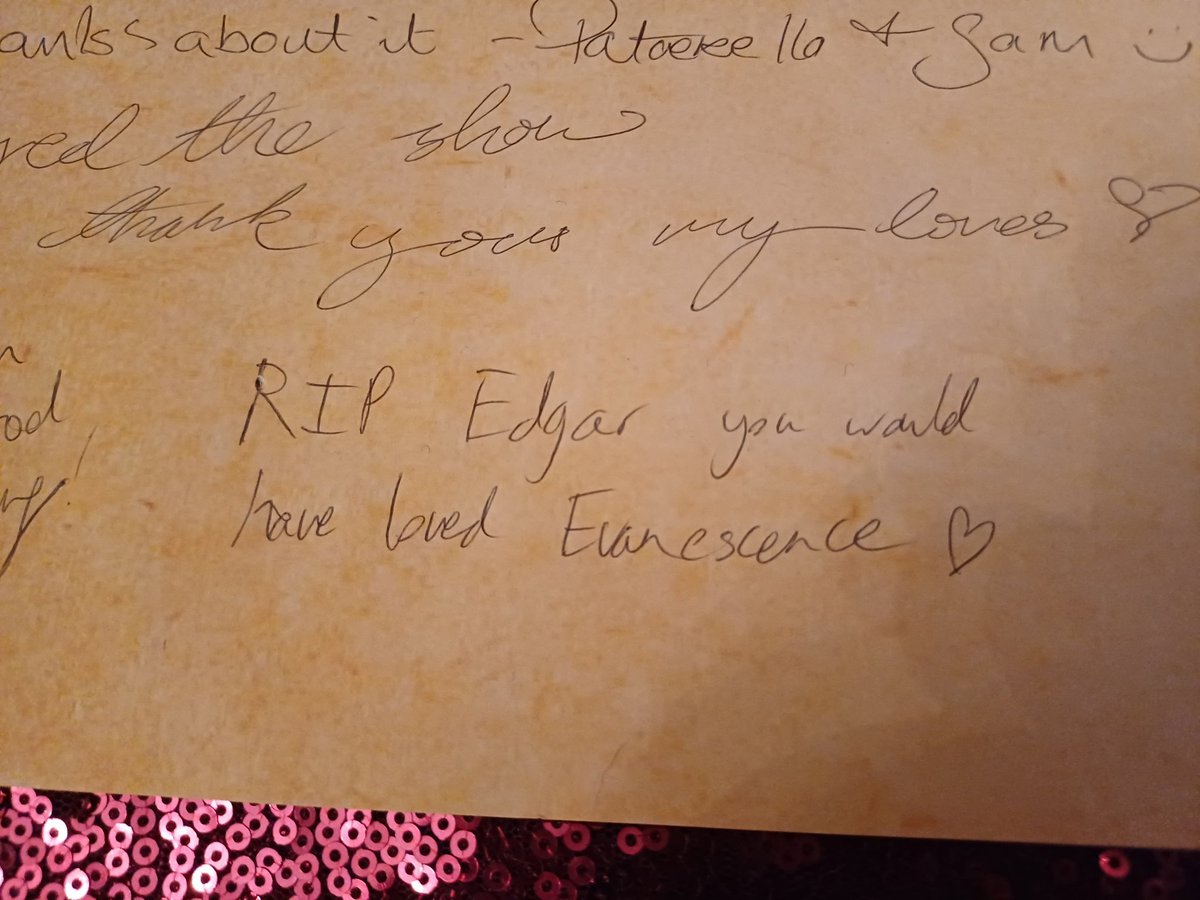 ankss about it - & Sam :)
red the show
thank yous my loves ♡
ood
RIP Edgar you would
have loved Evanescence ♡